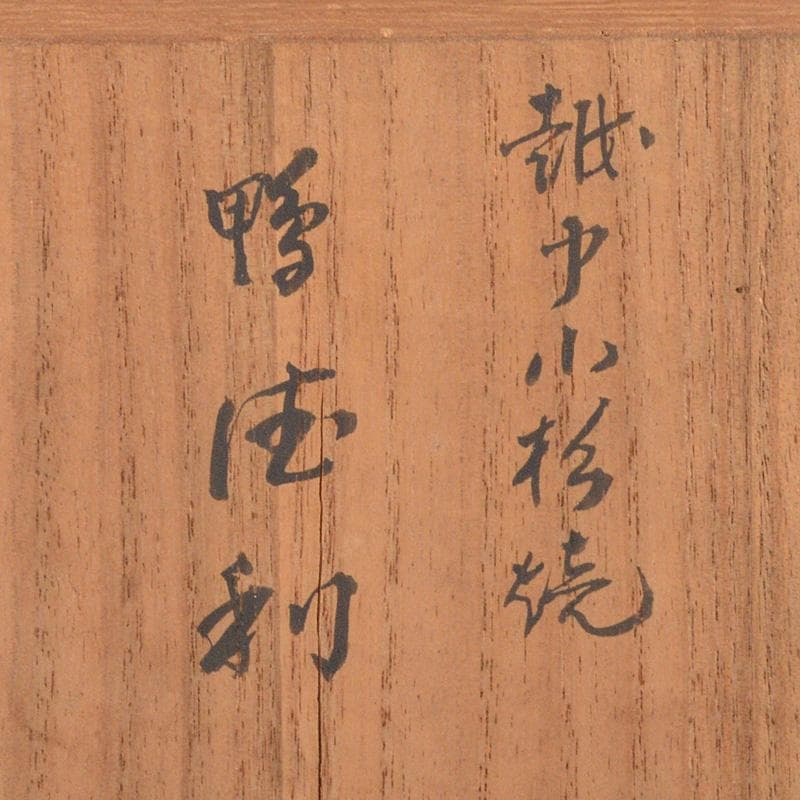 越中小杉焼
鴨徳利